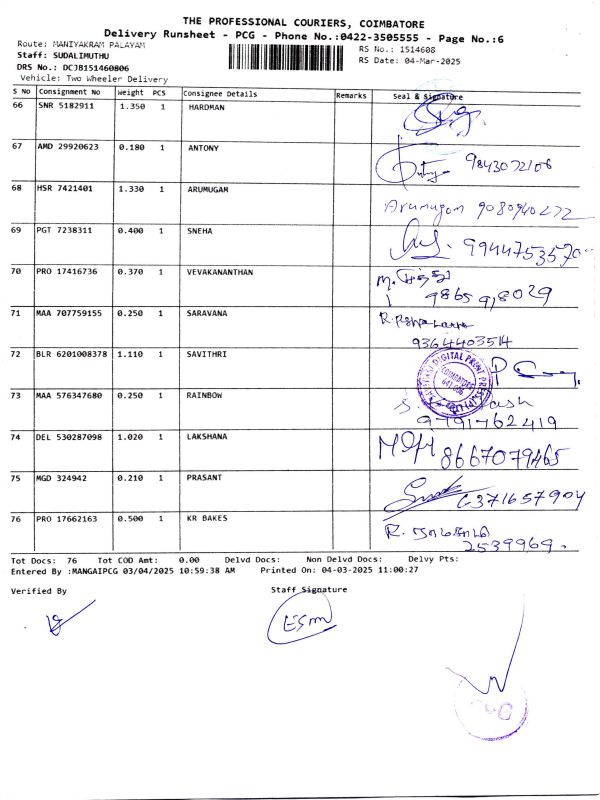 THE PROFESSIONAL COURIERS, COIMBATORE
Delivery Runsheet - PCG - Phone No.:0422-3505555 - Page No.:6
Route: MANIYAKRAM PALAYAM
RS No.: 1514608
Staff: SUDALIMUTHU
RS Date: 04-Mar-2025
DRS No.: DCJB151460806
Vehicle: Two Wheeler Delivery
S No Consignment No Weight PCS Consignee Details Remarks Seal & Signature
66 SNR 5182911 1.350 1 HARDMAN
67 AMD 29920623 0.180 1 ANTONY 9843072108
68 HSR 7421401 1.330 1 ARUMUGAM Arumugam 9080940272
69 PGT 7238311 0.400 1 SNEHA 9944753570
70 PRO 17416736 0.370 1 VEVAKANANTHAN
71 MAA 707759155 0.250 1 SARAVANA
9364403514
72 BLR 6201008378 1.110 1 SAVITHRI
73 MAA 576347680 0.250 1 RAINBOW
9791762419
74 DEL 530287098 1.020 1 LAKSHANA 8667079465
75 MGD 324942 0.210 1 PRASANT
76 PRO 17662163 0.500 1 KR BAKES
2539969.
Tot Docs: 76 Tot COD Amt: 0.00 Delvd Docs: Non Delvd Docs: Delvy Pts:
Entered By :MANGAIPCG 03/04/2025 10:59:38 AM Printed On: 04-03-2025 11:00:27
Verified By Staff Signature
ESM